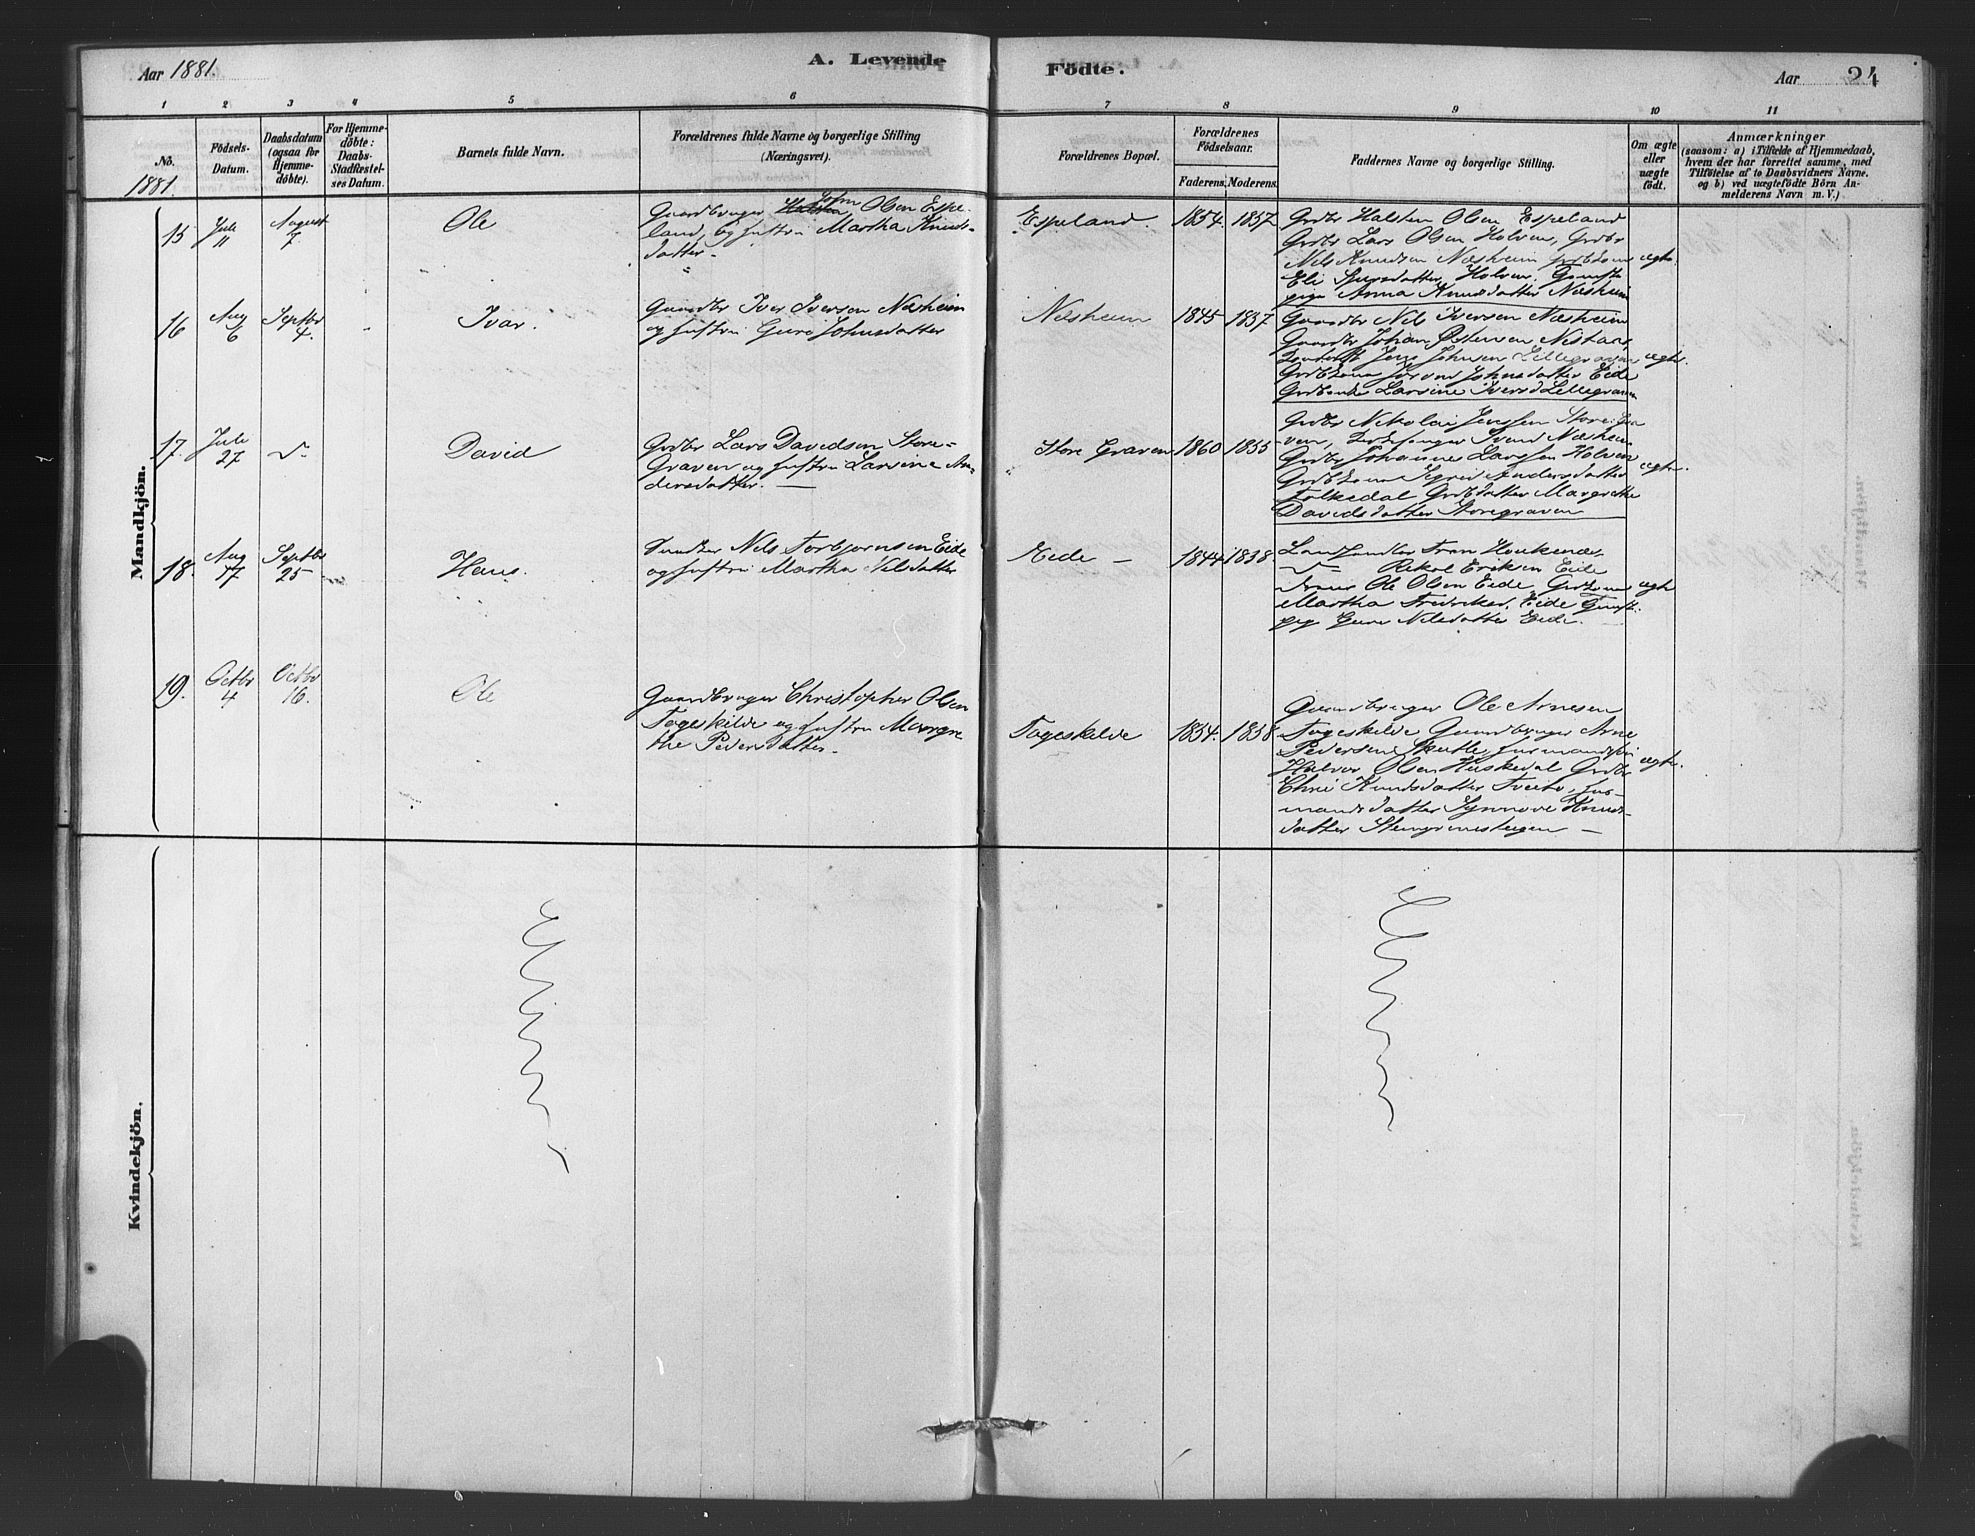 Aar 1881.
A. Levende
Födte.
Aar
24
1 2 3 4 5 6 7 8 9 10 11
No.
Födsels-
Datum.
Daabsdatum
(ogsaa for
Hjemme-
døbte).
For Hjemme-
döbte:
Daabs-
Stadfæstel-
ses Datum.
Barnets fulde Navn.
Forældrenes fulde Navne og borgerlige Stilling
(Næringsvei).
Forældrenes Bopæl.
Forældrenes
Födselsaar.
Faderens. Moderens.
Faddernes Navne og borgerlige Stilling.
Om ægte
eller
uægte
födt.
Anmærkninger
(saasom: a) i Tilfælde af Hjemmedaab,
hvem der har forrettet samme, med
Tilföielse af to Daabsvidners Navne.
og b) ved uægtefödte Börn An-
melderens Navn m. V.)
1881
Mandkjön.
15
Juli
11
August
7
Ole
Gaardbruger Olsen Espe-
land og hustru Martha Knuds-
datter
Espeland.
1854. 1857
Grdbr Halsten Olsen Espeland
Grdbr Lars Olsen Holven, Grdbr
Nils Knudsen Næsheim
Eli Holven,
pige Anna Knudsdatter Næsheim
ægte.
16
Aug
6
Septbr
4.
Ivar.
Gaardbr Iver Iversen Næsheim
og hustru Guro Johnsdatter
Næsheim
1845 1837
Gaardbr Nils Iversen Næsheim
Gaardbr Johan Østensen Nistaas,
Jens Johnsen Lillegraven
Johnsdatter Eide
Larsine Iversd Lillegraven
ægte.
17.
Juli
27
David
Grdbr Lars Davidsen Store-
Graven og hustru Larsine An-
dersdatter. —
Store Graven
1860 1855
Grdbr Nikolai Jenssen Store Gra
ven, Svend Næsheim
Grdbr Johannes Larssen Holven
Andersdatter
Folkedal Grdbdatter Margrethe
Davidsdatter Storegraven
ægte.
18.
Aug
17
Septbr
25
Hans.
Nils Torbjørnsen Eide
og hustru Martha Nilsdatter
Eide —
1844 1838
Landhandler
Eriksen Eide
Ole Olsen Eide,
Martha Eide
pige Nilsdatter Eide.
ægte
19.
Octbr
4
Octbr
16.
Ole
Gaardbruger Christopher Olsen
Tögeskilde og hustru Margre
the Pedersdatter.
Tögeskilde
1854. 1858
Gaardbruger Ole Arnesen
Tögeskilde Gaardbruger Arne
Pedersen
Halvor Olsen Grdbr
Knudsdatter Tveito, hus-
mandsdatter Synnove Knuds-
datter —
ægte.
Kvindekjön.